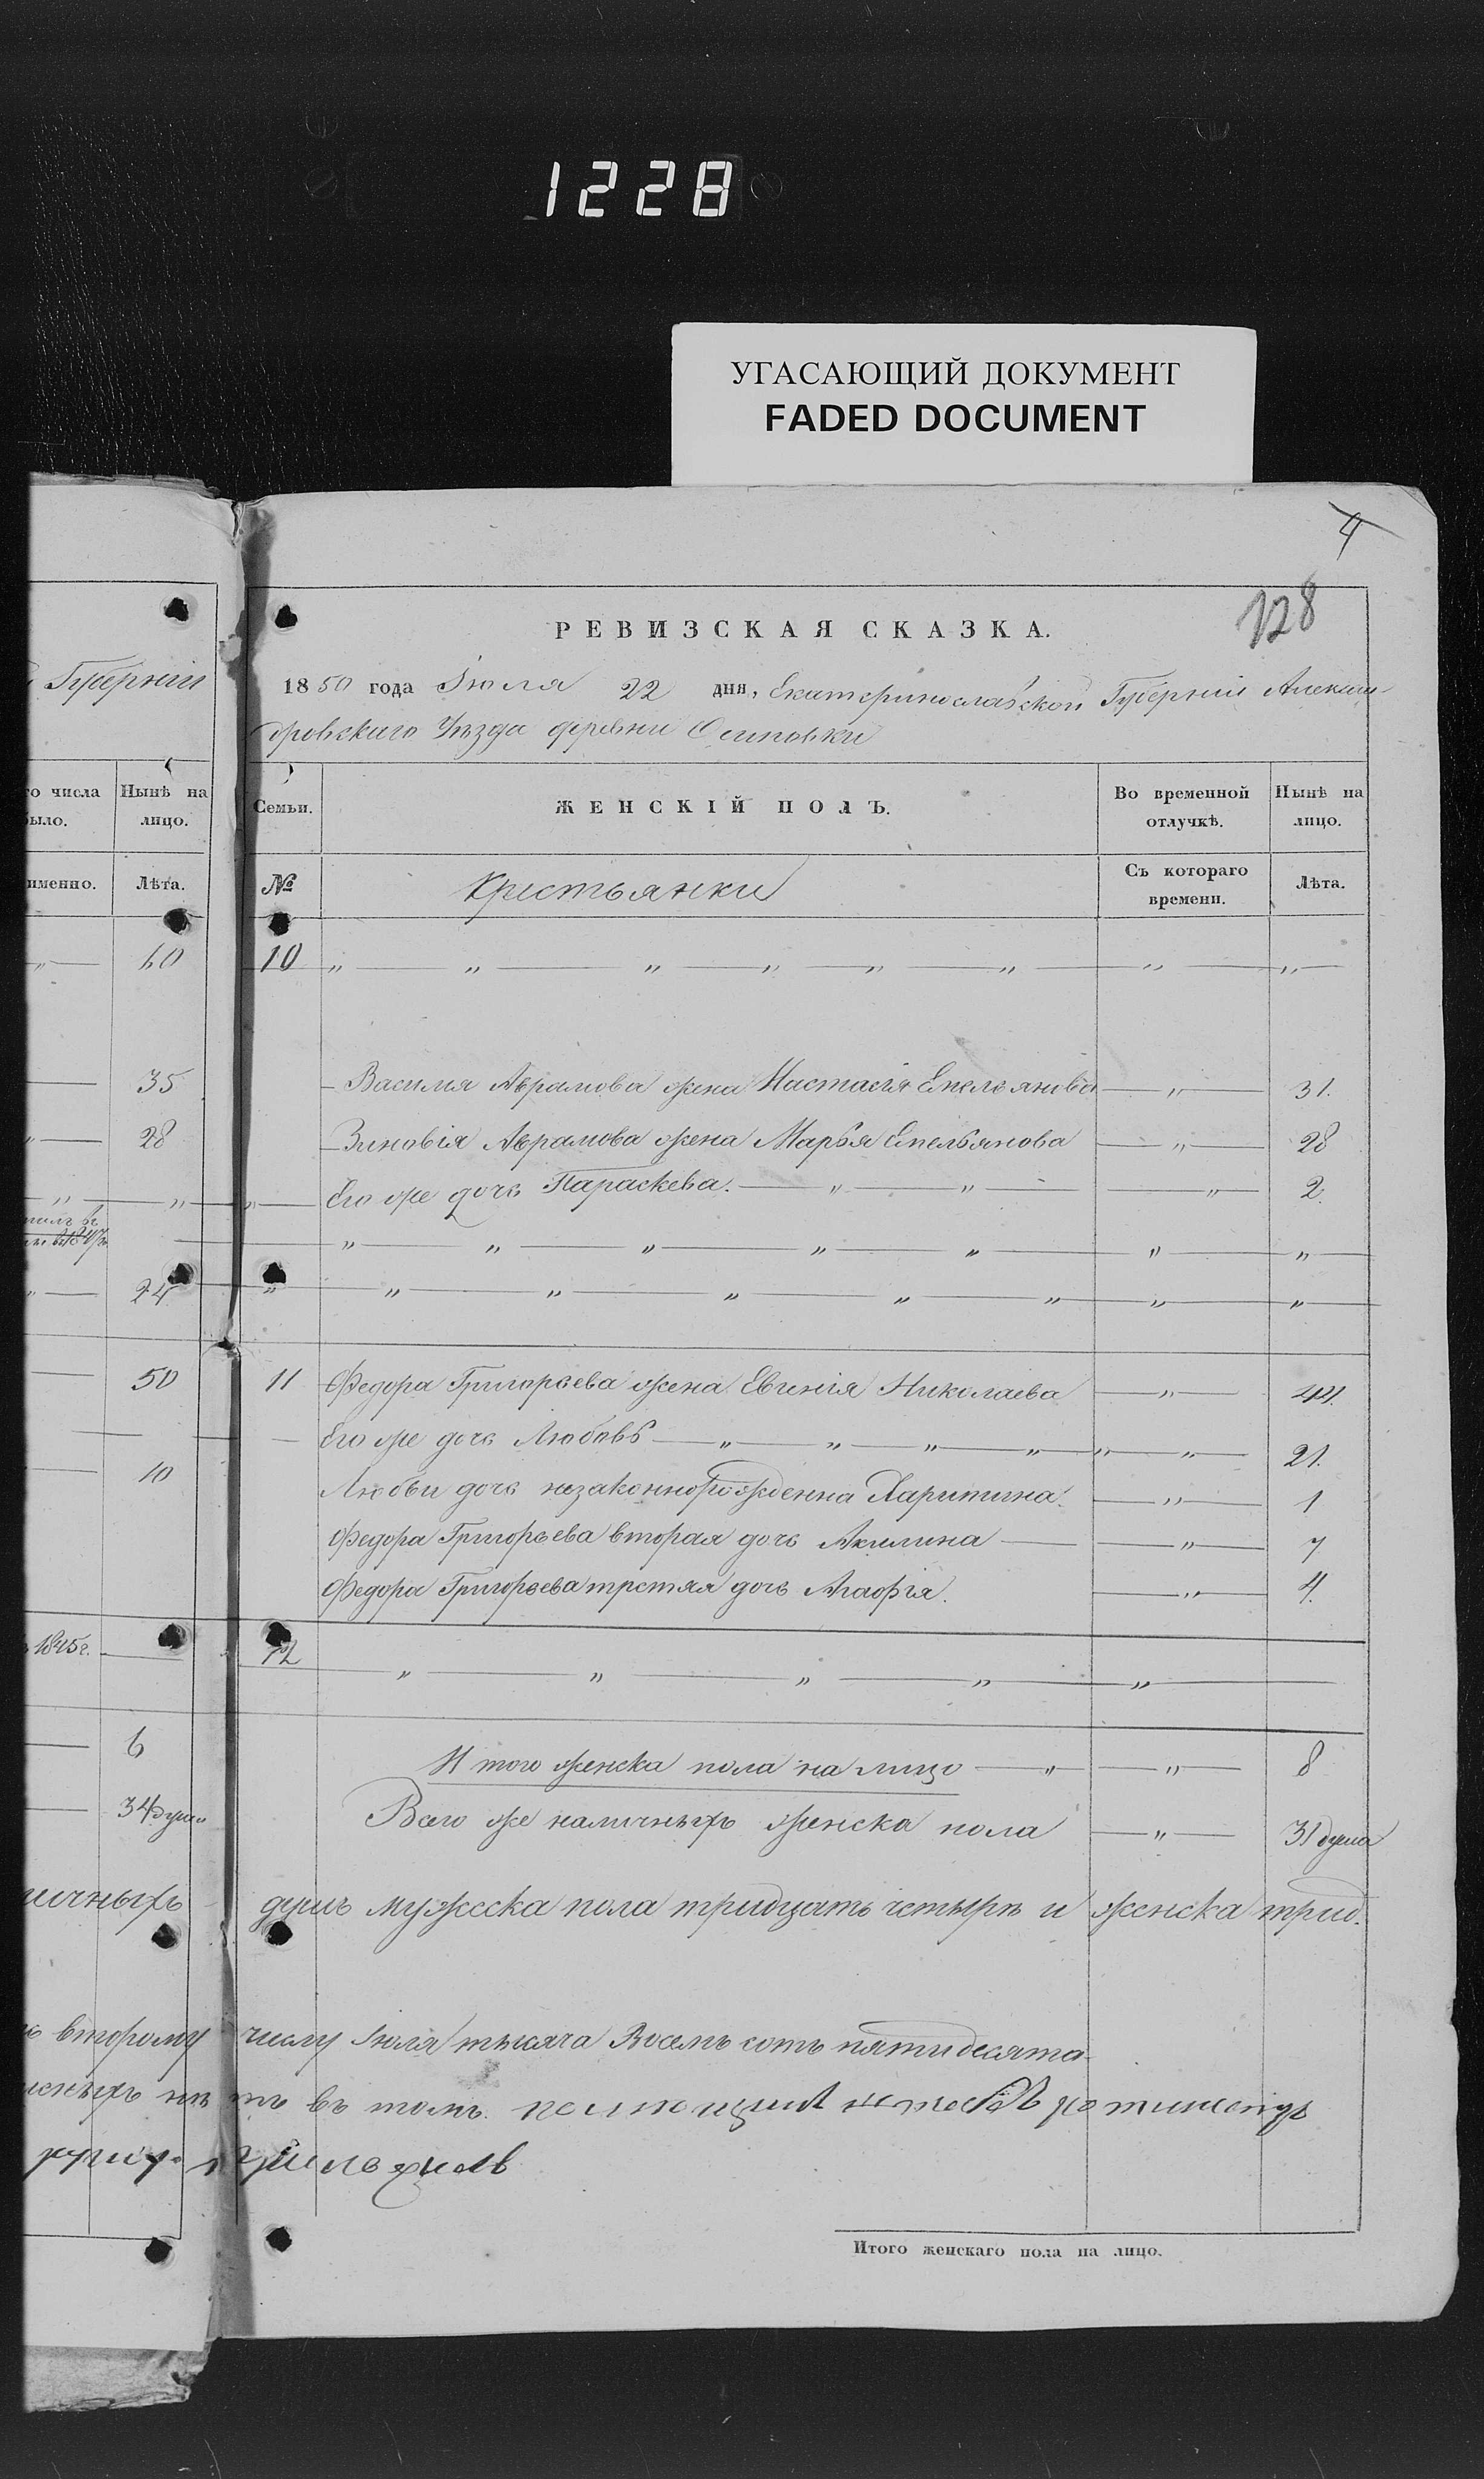 1228
УГАСАЮЩИЙ ДОКУМЕНТ
FADED DOCUMENT
4
128
РЕВИЗСКАЯ СКАЗКА.
Губерніи
1850 года Іюля 22 дня, Екатеринославской Губерніи Алексан-
дровскаго Уѣзда деревни Осиповки
го числа
было.
Нынѣ на
лицо.
Семьи.
ЖЕНСКІЙ ПОЛЪ.
Во временной
отлучкѣ.
Нынѣ на
лицо.
именно.
Лѣта.
№
Крестьянки
Съ котораго
времени.
Лѣта.
60
10 „ „ „ „ „ „ „ „
35
Василия Аврамова жена Настасія Емельянова „ 31.
28
Зиновія Аврамова жена Марья Емельянова „ 28
Его же дочь Параскева. „ „ „ 2.
„ „ „ „ „ „ „
24
„ „ „ „ „ „ „ „
50
11 Федора Григорьева жена Евгенія Николаева „ 44.
Его же дочь Любовь „ „ „ „ „ „ 21.
10
Любви дочь незаконнорожденна Харитина. „ 1
Федора Григорьева вторая дочь Акилина „ 7
Федора Григорьева третяя дочь Агафія. „ 4.
1845г.
12 „ „ „ „ „
6
Итого женска пола на лицо „ „ 8
34 душ
Всего же наличныхъ женска пола „ 31 душа
личныхъ душъ мужеска пола тридцать четыре и женска трид.
второму числу Іюля тысяча Восемь сотъ пятидесята
въ томъ
Итого женскаго пола на лицо.